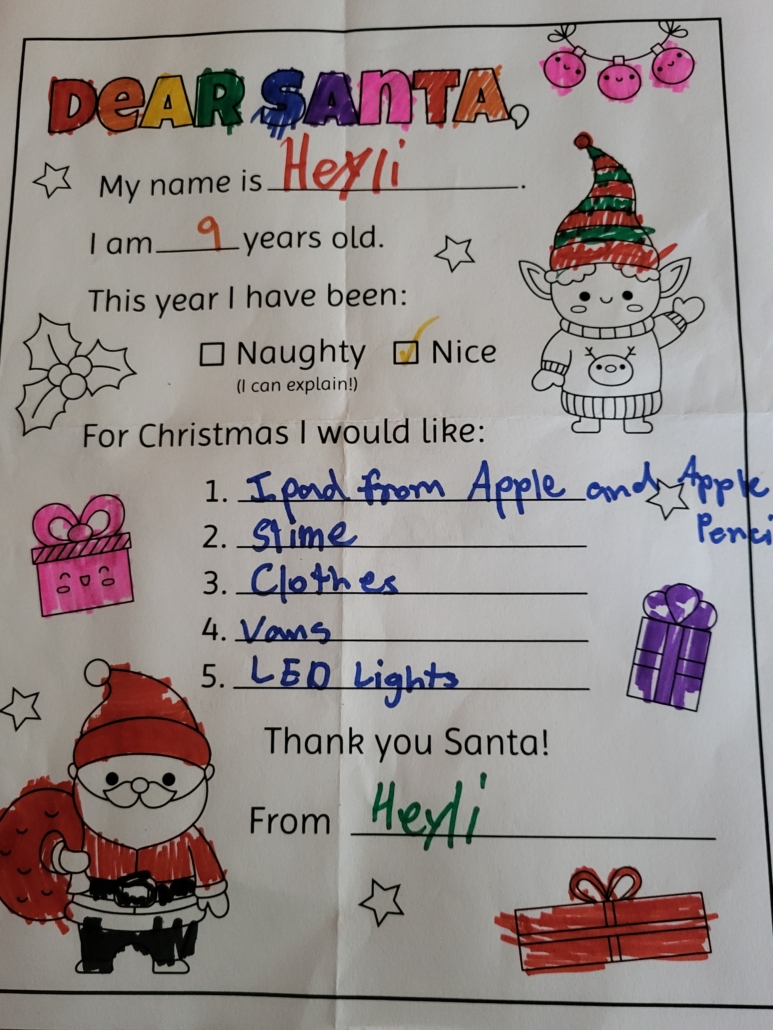 DEAR SANTA,
My name is Heyli.
I am 9 years old.
This year I have been:
Naughty Nice
(I can explain!)
For Christmas I would like:
1. Ipad from Apple and Apple
Penci
2. Slime
3. Clothes
4. Vans
5. LED Lights
Thank you Santa!
From Heyli